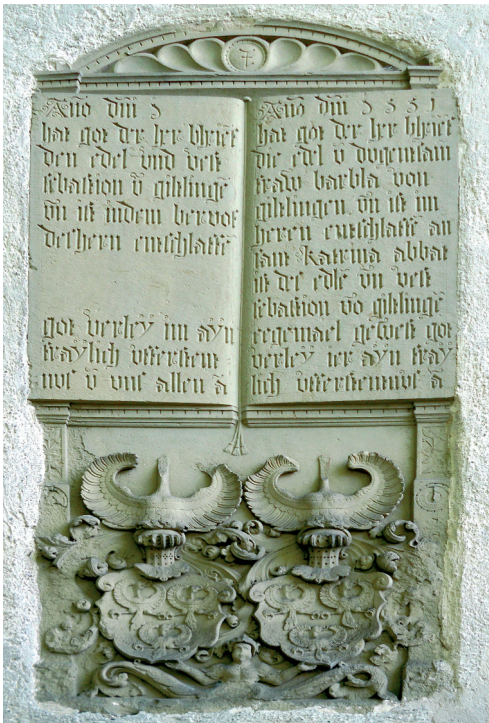 Ano dm 1
hat got der her bhrieft
den edel vnd vest
sebastion v giltlinge
vn ist indem bervof
des hern entschlaffe
got verley im ayn
fraylich vferstent
nvs v vns allen a
Ano dm 1551
hat got der her bhrieft
die edel v dvgentsam
fraw barbla von
giltlingen vn ist im
herren entschlaffe an
sant katrina abbat
ist des edle vn vest
sebastion vo giltlinge
egemael gewest got
verley ier ayn fray
lich vferstentnvs a